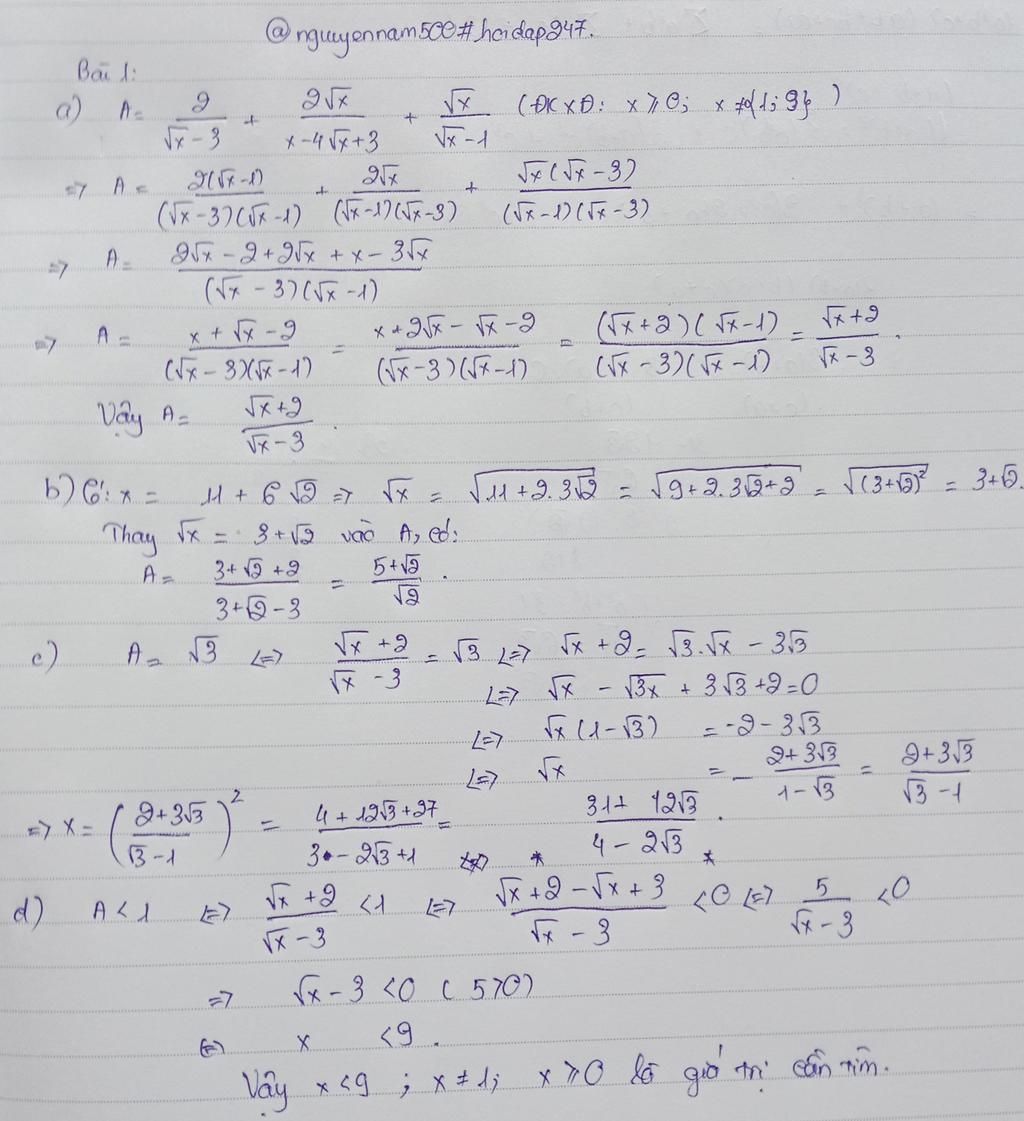 @nguyennam500#hoidap247.
Bài 1:
a) A = 2/(√x - 3) + 2√x/(x - 4√x + 3) + √x/(√x - 1) (ĐKXĐ: x ≥ 0; x ≠ {1; 9})
=> A = 2(√x - 1)/((√x - 3)(√x - 1)) + 2√x/((√x - 1)(√x - 3)) + √x(√x - 3)/((√x - 1)(√x - 3))
=> A = (2√x - 2 + 2√x + x - 3√x)/((√x - 3)(√x - 1))
=> A = (x + √x - 2)/((√x - 3)(√x - 1)) = (x + 2√x - √x - 2)/((√x - 3)(√x - 1)) = ((√x + 2)(√x - 1))/((√x - 3)(√x - 1)) = (√x + 2)/(√x - 3).
Vậy A = (√x + 2)/(√x - 3).
b) Có: x = 11 + 6√2 => √x = √(11 + 2.3√2) = √(9 + 2.3√2 + 2) = √((3 + √2)²) = 3 + √2.
Thay √x = 3 + √2 vào A, có:
A = (3 + √2 + 2)/(3 + √2 - 3) = (5 + √2)/√2.
c) A = √3 <=> (√x + 2)/(√x - 3) = √3 <=> √x + 2 = √3.√x - 3√3
<=> √x - √(3x) + 3√3 + 2 = 0
<=> √x(1 - √3) = -2 - 3√3
<=> √x = - (2 + 3√3)/(1 - √3) = (2 + 3√3)/(√3 - 1)
=> x = ((2 + 3√3)/(√3 - 1))² = (4 + 12√3 + 27)/(3 - 2√3 + 1) = (31 + 12√3)/(4 - 2√3).
d) A < 1 <=> (√x + 2)/(√x - 3) < 1 <=> (√x + 2 - √x + 3)/(√x - 3) < 0 <=> 5/(√x - 3) < 0
=> √x - 3 < 0 (5 > 0)
<=> x < 9.
Vậy x < 9; x ≠ 1; x ≥ 0 là giá trị cần tìm.